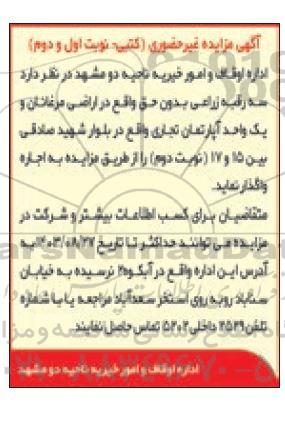 آگهی مزایده غیرحضوری (کتبی- نوبت اول و دوم)
اداره اوقاف و امور خیریه ناحیه دو مشهد در نظر دارد
سه رقبه زراعی بدون حق واقع در اراضی مرغانان و
یک واحد آپارتمان تجاری واقع در بلوار شهید صادقی
بین ۱۵ و ۱۷ (نوبت دوم) را از طریق مزایده به اجاره
واگذار نماید.
متقاضیان برای کسب اطلاعات بیشتر و شرکت در
مزایده می توانند حداکثر تا تاریخ ۱۴۰۳/۰۸/۲۷ به
آدرس این اداره واقع در آبکوه۲ نرسیده به خیابان
سناباد روبه روی استخر سعدآباد مراجعه یا با شماره
تلفن ۲۵۲۹ داخلی ۵۲۰۲ تماس حاصل نمایند.
اداره اوقاف و امور خیریه ناحیه دو مشهد